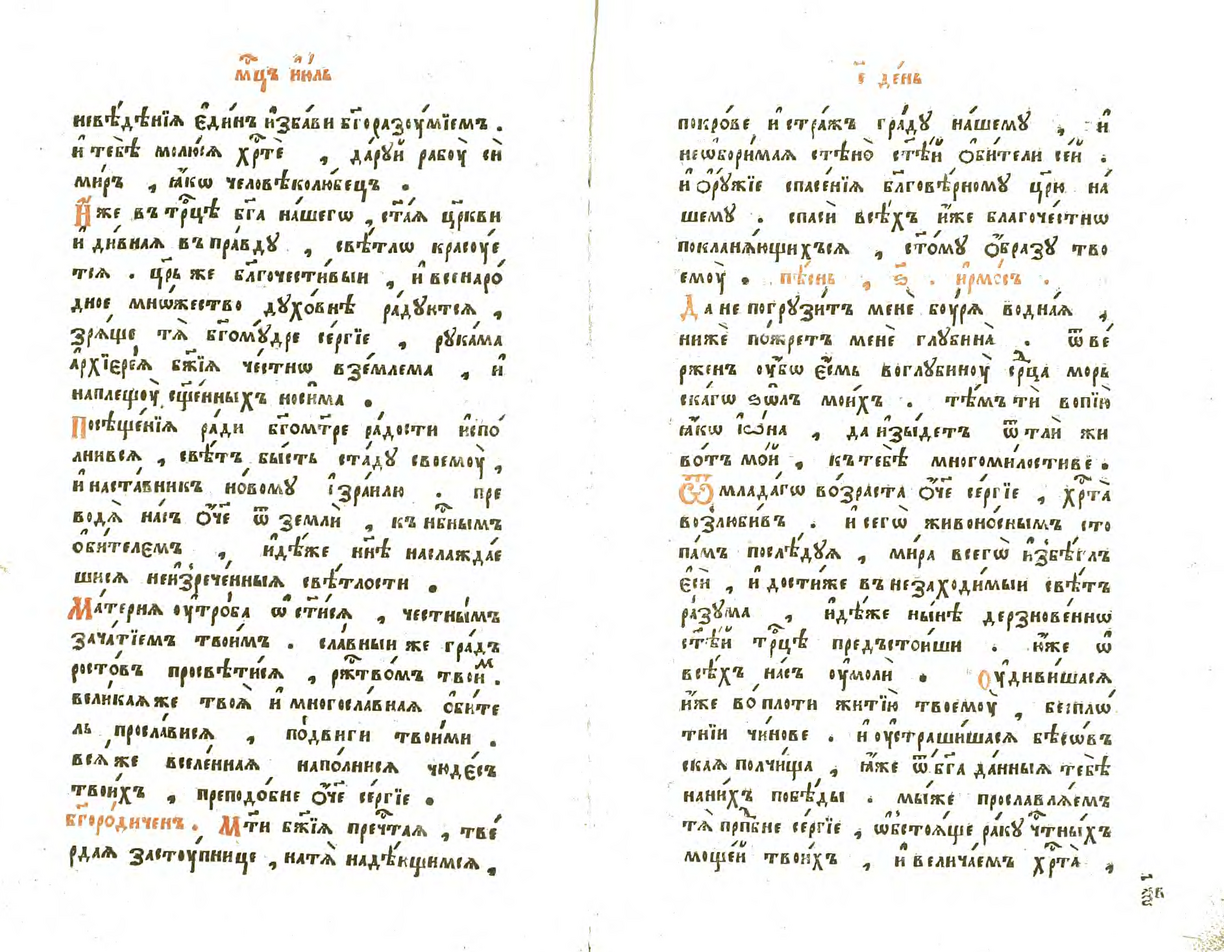 мⷭ҇цъ і҆ю́ль
невѣ́дѣнїѧ є҆ди́нъ и҆зба́ви бг҃оразоу́мїемъ .
и҆ тебѣ̀ молю́сѧ хрⷭ҇тѐ , да́руй рабоу̀ си̑
ми́ръ , ꙗ҆́кѡ человѣколю́бецъ .
И҆́же въ трⷪ҇цѣ бг҃а на́шегѡ , ст҃а́ѧ цр҃кви
и҆ ди́внаѧ въ пра́вдꙋ , свѣ́тлѡ красоу́е
тсѧ . цр҃ь же благочести́выи , и҆ всенаро́
дное мно́жество дꙋхо́внѣ ра́дꙋютсѧ ,
зрѧ́ще тѧ̀ бг҃омꙋ́дре се́ргїе , рꙋка́ма
а҆рхїерє́ѧ бж҃їѧ че́стнѡ взе́млема , и҆
на плещоу̀ сщ҃е́нныхъ носи́ма .
Посѣще́нїѧ ра́ди бг҃ома́тре ра́дости и҆спо́
лнивсѧ , свѣ́тъ бы́сть ста́дꙋ своемоу̀ ,
и҆ наста́вникъ но́вомꙋ і҆зра́илю . пре
водѧ̀ на́съ ѻ҆́че ѿ землѝ , къ нб҃нымъ
ѻ҆би́телємъ , и҆дѣ́же нн҃ѣ наслажда́е
шисѧ неи҆зрече́нныѧ свѣ́тлости .
Ма́тернѧ оу҆тро́ба ѡ҆ст҃и́сѧ , честны́мъ
зача́тїемъ твои́мъ . сла́вныи же гра́дъ
росто́въ просвѣти́сѧ , рж҃тво́мъ твои́м .
вели́каѧ же твоѧ̀ и҆ многосла́внаѧ ѻ҆би́те
ль просла́висѧ , по́двиги твои́ми .
всѧ́ же вселе́ннаѧ напо́лнисѧ чюде́съ
твои́хъ , преподо́бне ѻ҆́че се́ргїе .
бг҃оро́диченъ . Мт҃и бж҃їѧ пречⷭ҇таѧ , тве́
рдаѧ застоу́пнице , на тѧ̀ надѣ́ющимсѧ ,
і҃ де́нь
покро́ве и҆ стра́жъ гра́дꙋ на́шемꙋ , и҆
неѡ҆бори́маѧ стѣно̀ ст҃ѣ́й ѻ҆би́тели се́й .
и҆ ѻ҆рꙋ́жїе спасе́нїѧ благовѣ́рномꙋ цр҃ю̀ на́
шемꙋ . спасѝ всѣ́хъ и҆́же благоче́стнѡ
покланѧ́ющихъсѧ , ст҃о́мꙋ ѻ҆́бразꙋ тво
емоу̀ . пѣ́снь , ѕ҃ . і҆рмо́съ .
Да не погрꙋзи́тъ менѐ боу́рѧ во́днаѧ ,
нижѐ пожре́тъ менѐ глꙋбина̀ . ѿве́
рженъ оу҆́бѡ є҆́смь во глꙋбиноу̀ срⷣца морь
ска́гѡ ѕѡ́лъ мои́хъ . тѣ́мъ ти̑ вопїю̀
ꙗ҆́кѡ і҆ѡ́на , да и҆зы́детъ ѿ тлѝ жи
во́тъ мо́й , къ тебѣ̀ многоми́лостиве .
Ѿ мла́дагѡ во́зраста ѻ҆́че се́ргїе , хрⷭ҇та̀
возлюби́въ . и҆ сегѡ̀ живоно́снымъ сто
па́мъ послѣ́дꙋѧ , ми́ра всегѡ̀ и҆збѣ́глъ
є҆сѝ , и҆ дости́же въ незаходи́мыи свѣ́тъ
ра́зꙋма , и҆дѣ́же ны́нѣ дерзнове́ннѡ
ст҃ѣ́й трⷪ҇цѣ предъстои́ши . ю҆́же ѡ҆
всѣ́хъ на́съ оу҆молѝ . Оу҆диви́шасѧ
и҆̀же во́ плоти житїю̀ твоемоу̀ , беспло́
тнїи чи́нове . и҆ оу҆страши́шасѧ бѣсѡ́въ
скаѧ полчи́ща , ꙗ҆́же ѿ бг҃а да́нныѧ тебѣ̀
на ни́хъ побѣ́ды . мы́ же прославлѧ́емъ
тѧ̀ прпⷣбне се́ргїе , ѡ҆бстоѧ́ще ра́кꙋ чтⷭ҇ныхъ
моще́й твои́хъ , и҆ велича́емъ хрⷭ҇та̀ ,